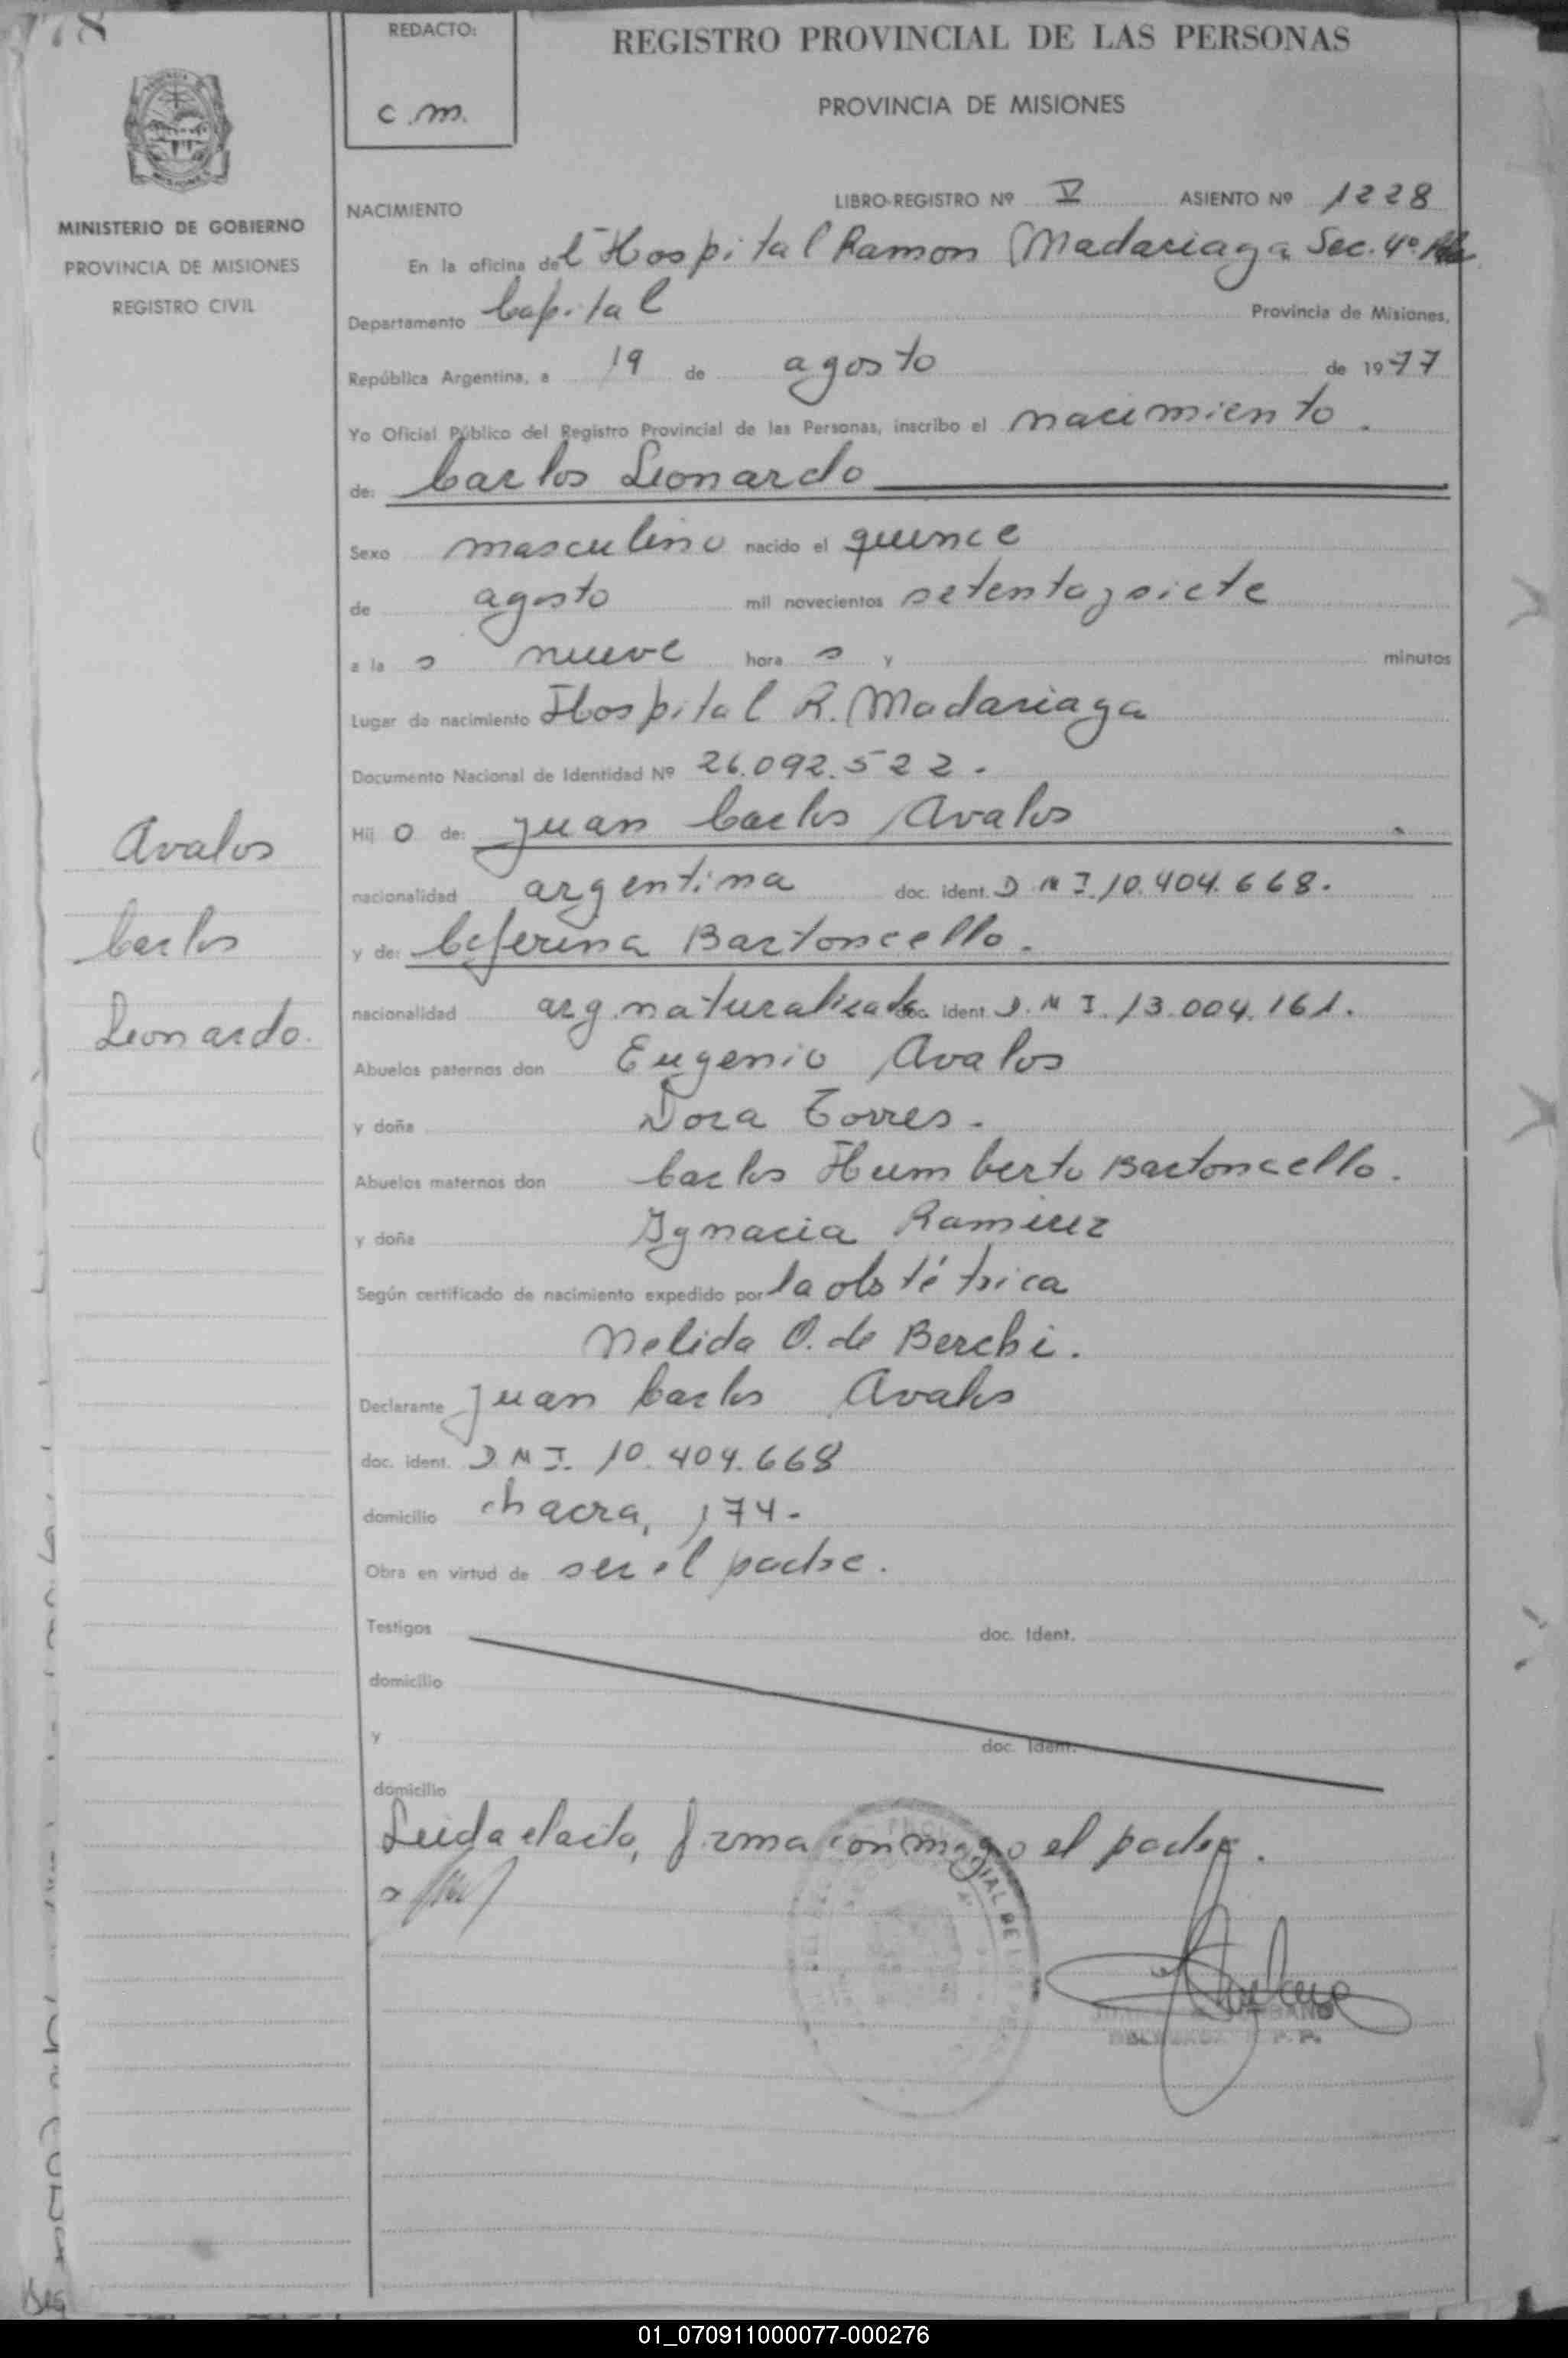 REDACTO:
c.m.
REGISTRO PROVINCIAL DE LAS PERSONAS
PROVINCIA DE MISIONES
MINISTERIO DE GOBIERNO
PROVINCIA DE MISIONES
REGISTRO CIVIL
NACIMIENTO LIBRO-REGISTRO Nº V ASIENTO Nº 1228
En la oficina del Hospital Ramon Madariaga Sec. 4º
Departamento Capital Provincia de Misiones,
República Argentina, a 19 de agosto de 1977
Yo Oficial Público del Registro Provincial de las Personas, inscribo el nacimiento.
de: Carlos Leonardo
Sexo masculino nacido el quince
de agosto mil novecientos setentaysiete
a la s nueve hora s y minutos
Lugar de nacimiento Hospital R. Madariaga
Documento Nacional de Identidad Nº 26.092.522.
Hij o de: Juan Carlos Avalos
nacionalidad argentina doc. ident. D N I. 10.404.668.
y de: Ceferina Bartoncello.
nacionalidad arg. naturalizada doc. ident. D. N I. 13.004.161.
Abuelos paternos don Eugenio Avalos
y doña Dora Torres.
Abuelos maternos don Carlos Humberto Bartoncello.
y doña Ignacia Ramirez
Según certificado de nacimiento expedido por la obstétrica
Nelida O. de Berchi.
Declarante Juan Carlos Avalos
doc. ident. D N I. 10.404.668
domicilio chacra, 174-
Obra en virtud de ser el padre.
Testigos doc. Ident.
domicilio
y doc. Ident.
domicilio
Leida el acta, firma conmigo el padre.
Avalos
Carlos
Leonardo.
01_070911000077-000276